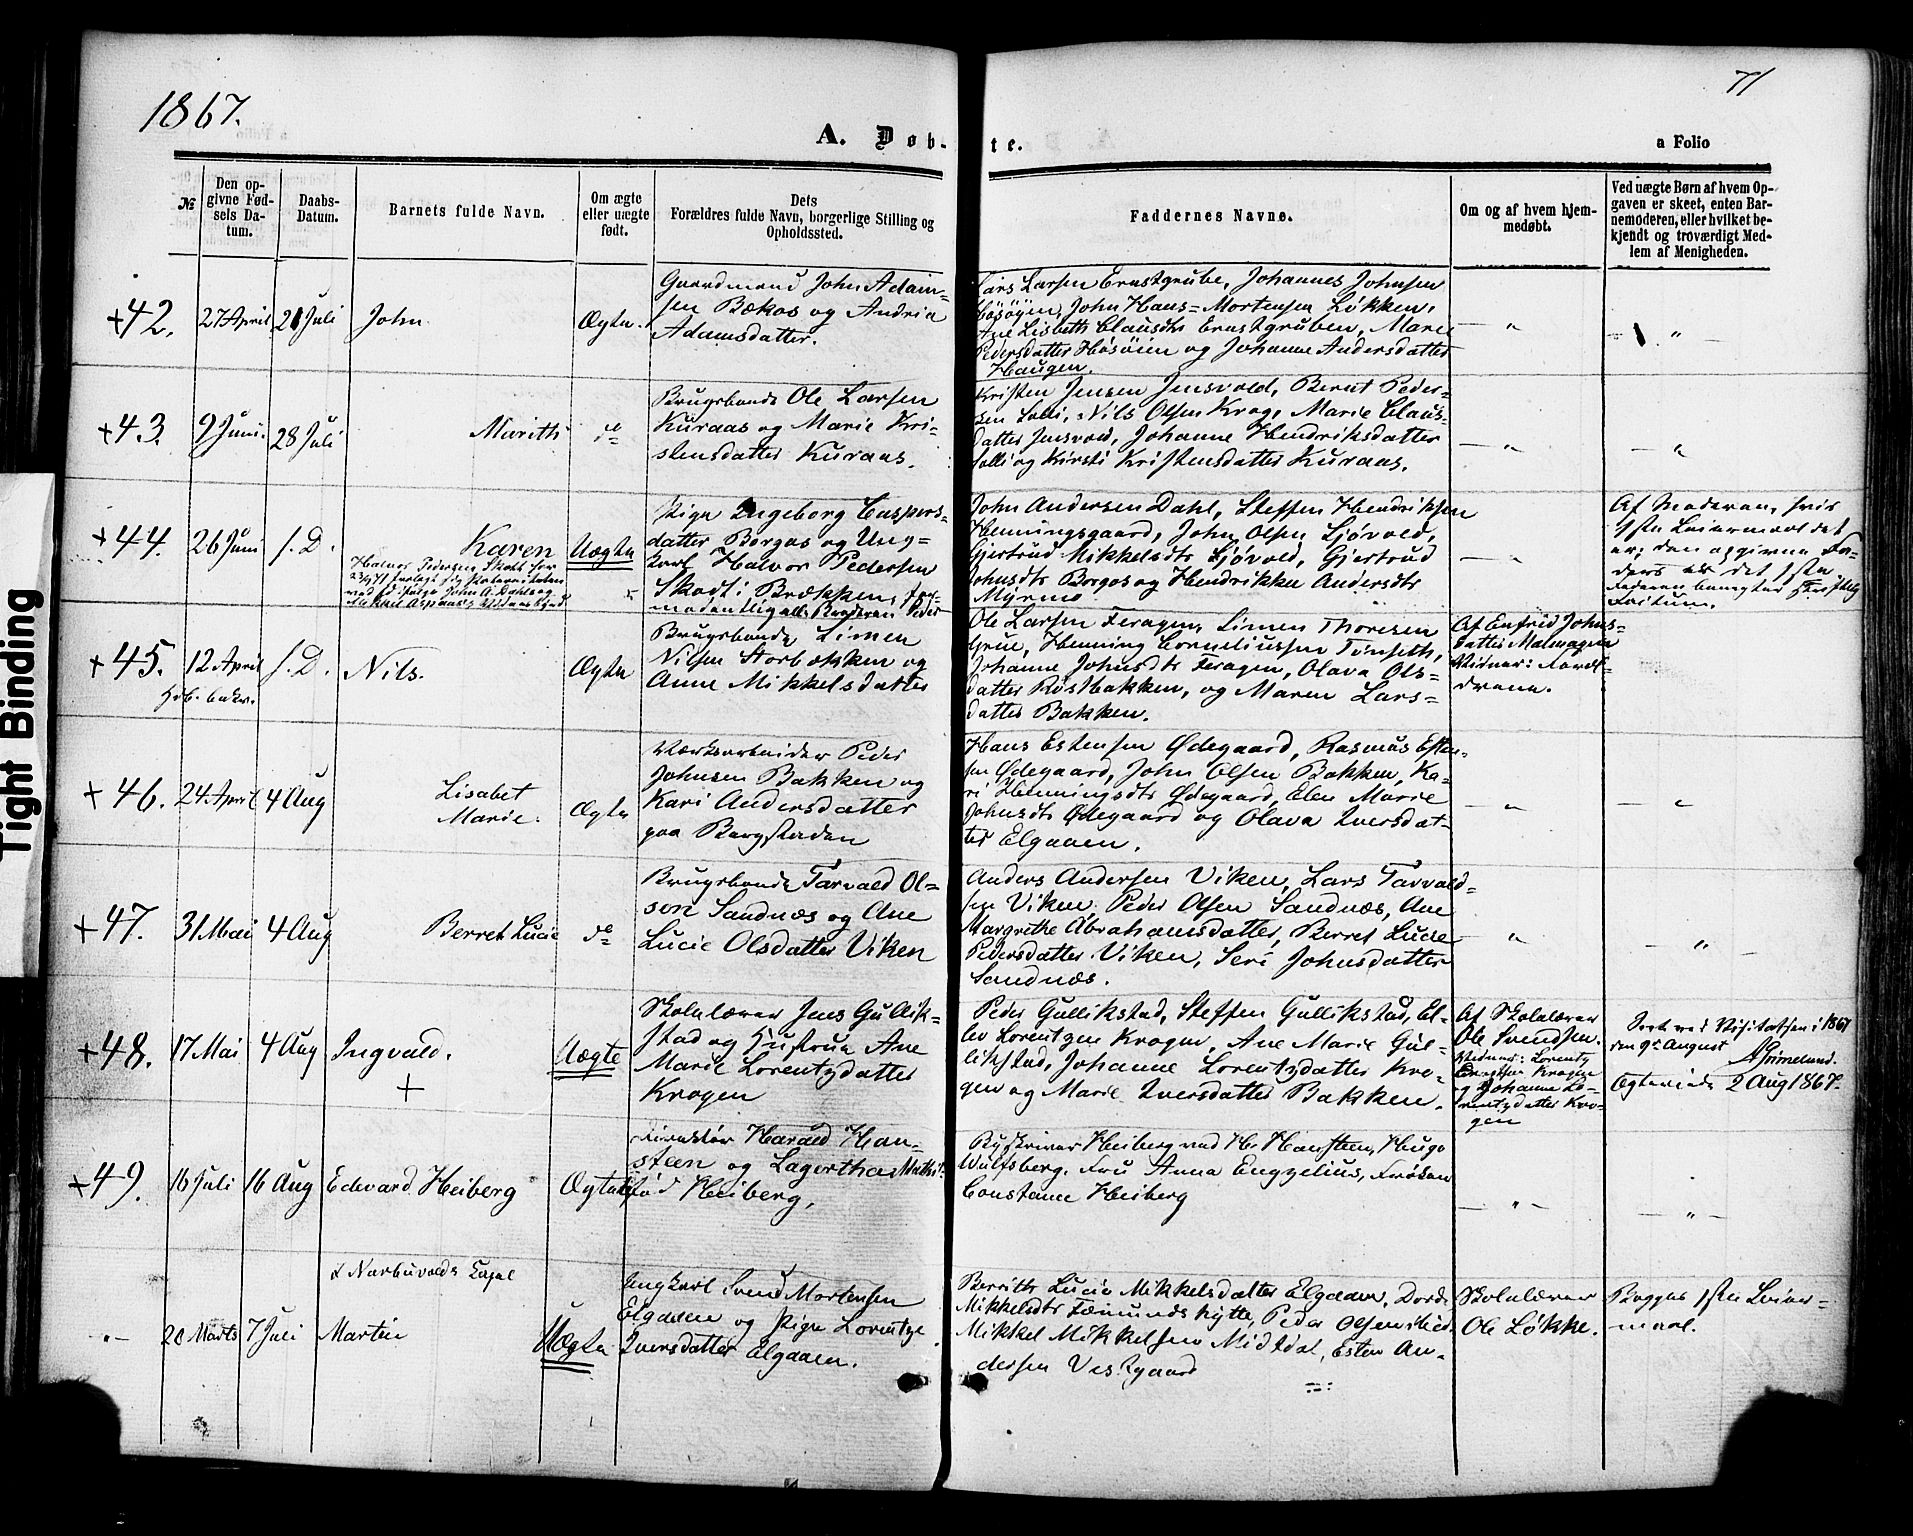 1867.
71
A. Døb-
te.
a Folio
№
Den op-
givne Fød-
sels Da-
tum.
Daabs-
Datum.
Barnets fulde Navn.
Om ægte
eller uægte
født.
Dets
Forældres fulde Navn, borgerlige Stilling og
Opholdssted.
Faddernes Navne.
Om og af hvem hjem-
medøbt.
Ved uægte Børn af hvem Op-
gaven er skeet, enten Bar-
nemoderen, eller hvilket be-
kjendt og troværdigt Med-
lem af Menigheden.
+42.
27 April
21 Juli
John
Ægte.
Gaardmand John Adam-
sen Bækos og Andrea
Adamsdatter.
Lars Larsen Ernstgrube, Johannes Johnsen
Høsøyen, John Hans= Mortensen Løkken,
Ane Lisbeth Clausdtr Ernstgruben, Marie
Pedersdatter Høsøien og Johanne Andersdatter
Haugen.
— " —
— " —
+43.
9 Juni.
28 Juli
Marith
do
Brugsbonde Ole Larsen
Kuraas og Marie Kri-
stensdatter Kuraas.
Kristen Jensen Jensvold, Bernt Peder-
sen Solli, Nils Olsen Krog, Marie Claus-
datter Jensvold, Johanne Hendriksdatter
Solli og Kirsti Kristensdatter Kuraas.
— " —
— "
+44.
26 Juni
s. D.
Karen
Halvor Pedersen Skott
Uægte
Pige Ingeborg Caspers-
datter Borgos og Ung-
karl Halvor Pedersen
Skott i Brækken,
modentlig
Broderen Peder
John Andersen Dahl, Steffen Hendriksen
Henningsgaard, John Olsen Sjøvold,
Gjertrud Mikkelsdtr Sjøvold, Gjertrud
Johnsdtr Borgos og Hendrikke Andersdtr
Myrmo
— " —
Af Moderen, hvis
1ste Leiermaal det
er; den opgivne Fa-
ders
det 1ste
+45.
12 April
s. D.
Nils.
Ægte
Brugsbonde Simen
Nilsen Storbækken og
Anne Mikkelsdatter
Ole Larsen Feragen, Simen Thoresen
Grue, Henning Corneliussen Tønseth,
Johanne Johnsdtr Feragen, Olava Ols-
datter Røstbakken, og Maren Lars-
datter Bakken.
Af Enfrid Johns-
datter Malmagen
Vidner: Foræl-
drene.
+46.
24 April
4 Aug
Lisabet
Marie.
Ægte
Værksarbeider Peder
Johnsen Bakken og
Kari Andersdatter
paa Bergstaden
Hans Estensen Ødegaard, Rasmus Esten-
sen Ødegaard, John Olsen Bakken, Ka-
ri Henningsdtr Ødegaard, Elen Marie
Johnsdtr Ødegaard og Olava Iversdat-
ter Elgaaen.
— " —
— "
+47.
31 Mai
4 Aug
Berret Lucie
do
Brugsbonde Tarvald Ol-
sen Sandnæs og Ane
Lucie Olsdatter Viken
Anders Andersen Viken, Lars Tarvald-
sen Viken, Peder Olsen Sandnæs, Ane
Margrethe Abrahamsdatter, Berret Lucie
Pedersdatter Viken, Seri Johnsdatter
Sandnæs.
— " —
— "
+48.
17 Mai
4 Aug
Ingvald.
+
Uægte
Skolelærer Jens Gullik-
stad og Hustrue Ane
Marie Lorentzdatter
Krogen
Peder Gullikstad, Steffen Gullikstad, El-
lev Lorentzen Krogen, Ane Marie Gul-
likstad, Johanne Lorentzdatter Kro-
gen og Marie Iversdatter Bakken.
Af Skolelærer
Ole Svendsen.
Vidner: Lorentz
Krogen
og Johanne Lo-
rentzdatter Kro-
gen
Visitatsen i 1867
den 9de August
Grimelund.
Ægteviede 2 Aug 1867.
+49.
16 Juli
16 Aug
Edvard Heiberg
Ægte
Direktør Harald Han-
steen og Lagertha
fød Heiberg,
Byskriver Heiberg ved Hr Hansteen, Hugo
Wulfsberg, Fru Anna Engzelius, Frøken
Constance Heiberg
— " —
— " —
i Narbuvolds Capel
— " —
20 Marts
7 Juli
Martin
Uægte
Ungkarl Svend Mortensen
Elgaaen og Pige Lorentze
Iversdatter Elgaaen.
Berrith Lucie Mikkelsdatter Elgaaen, Dorde
Mikkelsdtr Fæmundshytte, Peder Olsen
Mikkel Mikkelsen Midtdal, Esten An-
dersen Vestgaard
Skolelærer
Ole Løkke.
Begges 1ste Leier-
maal.
Tight Binding